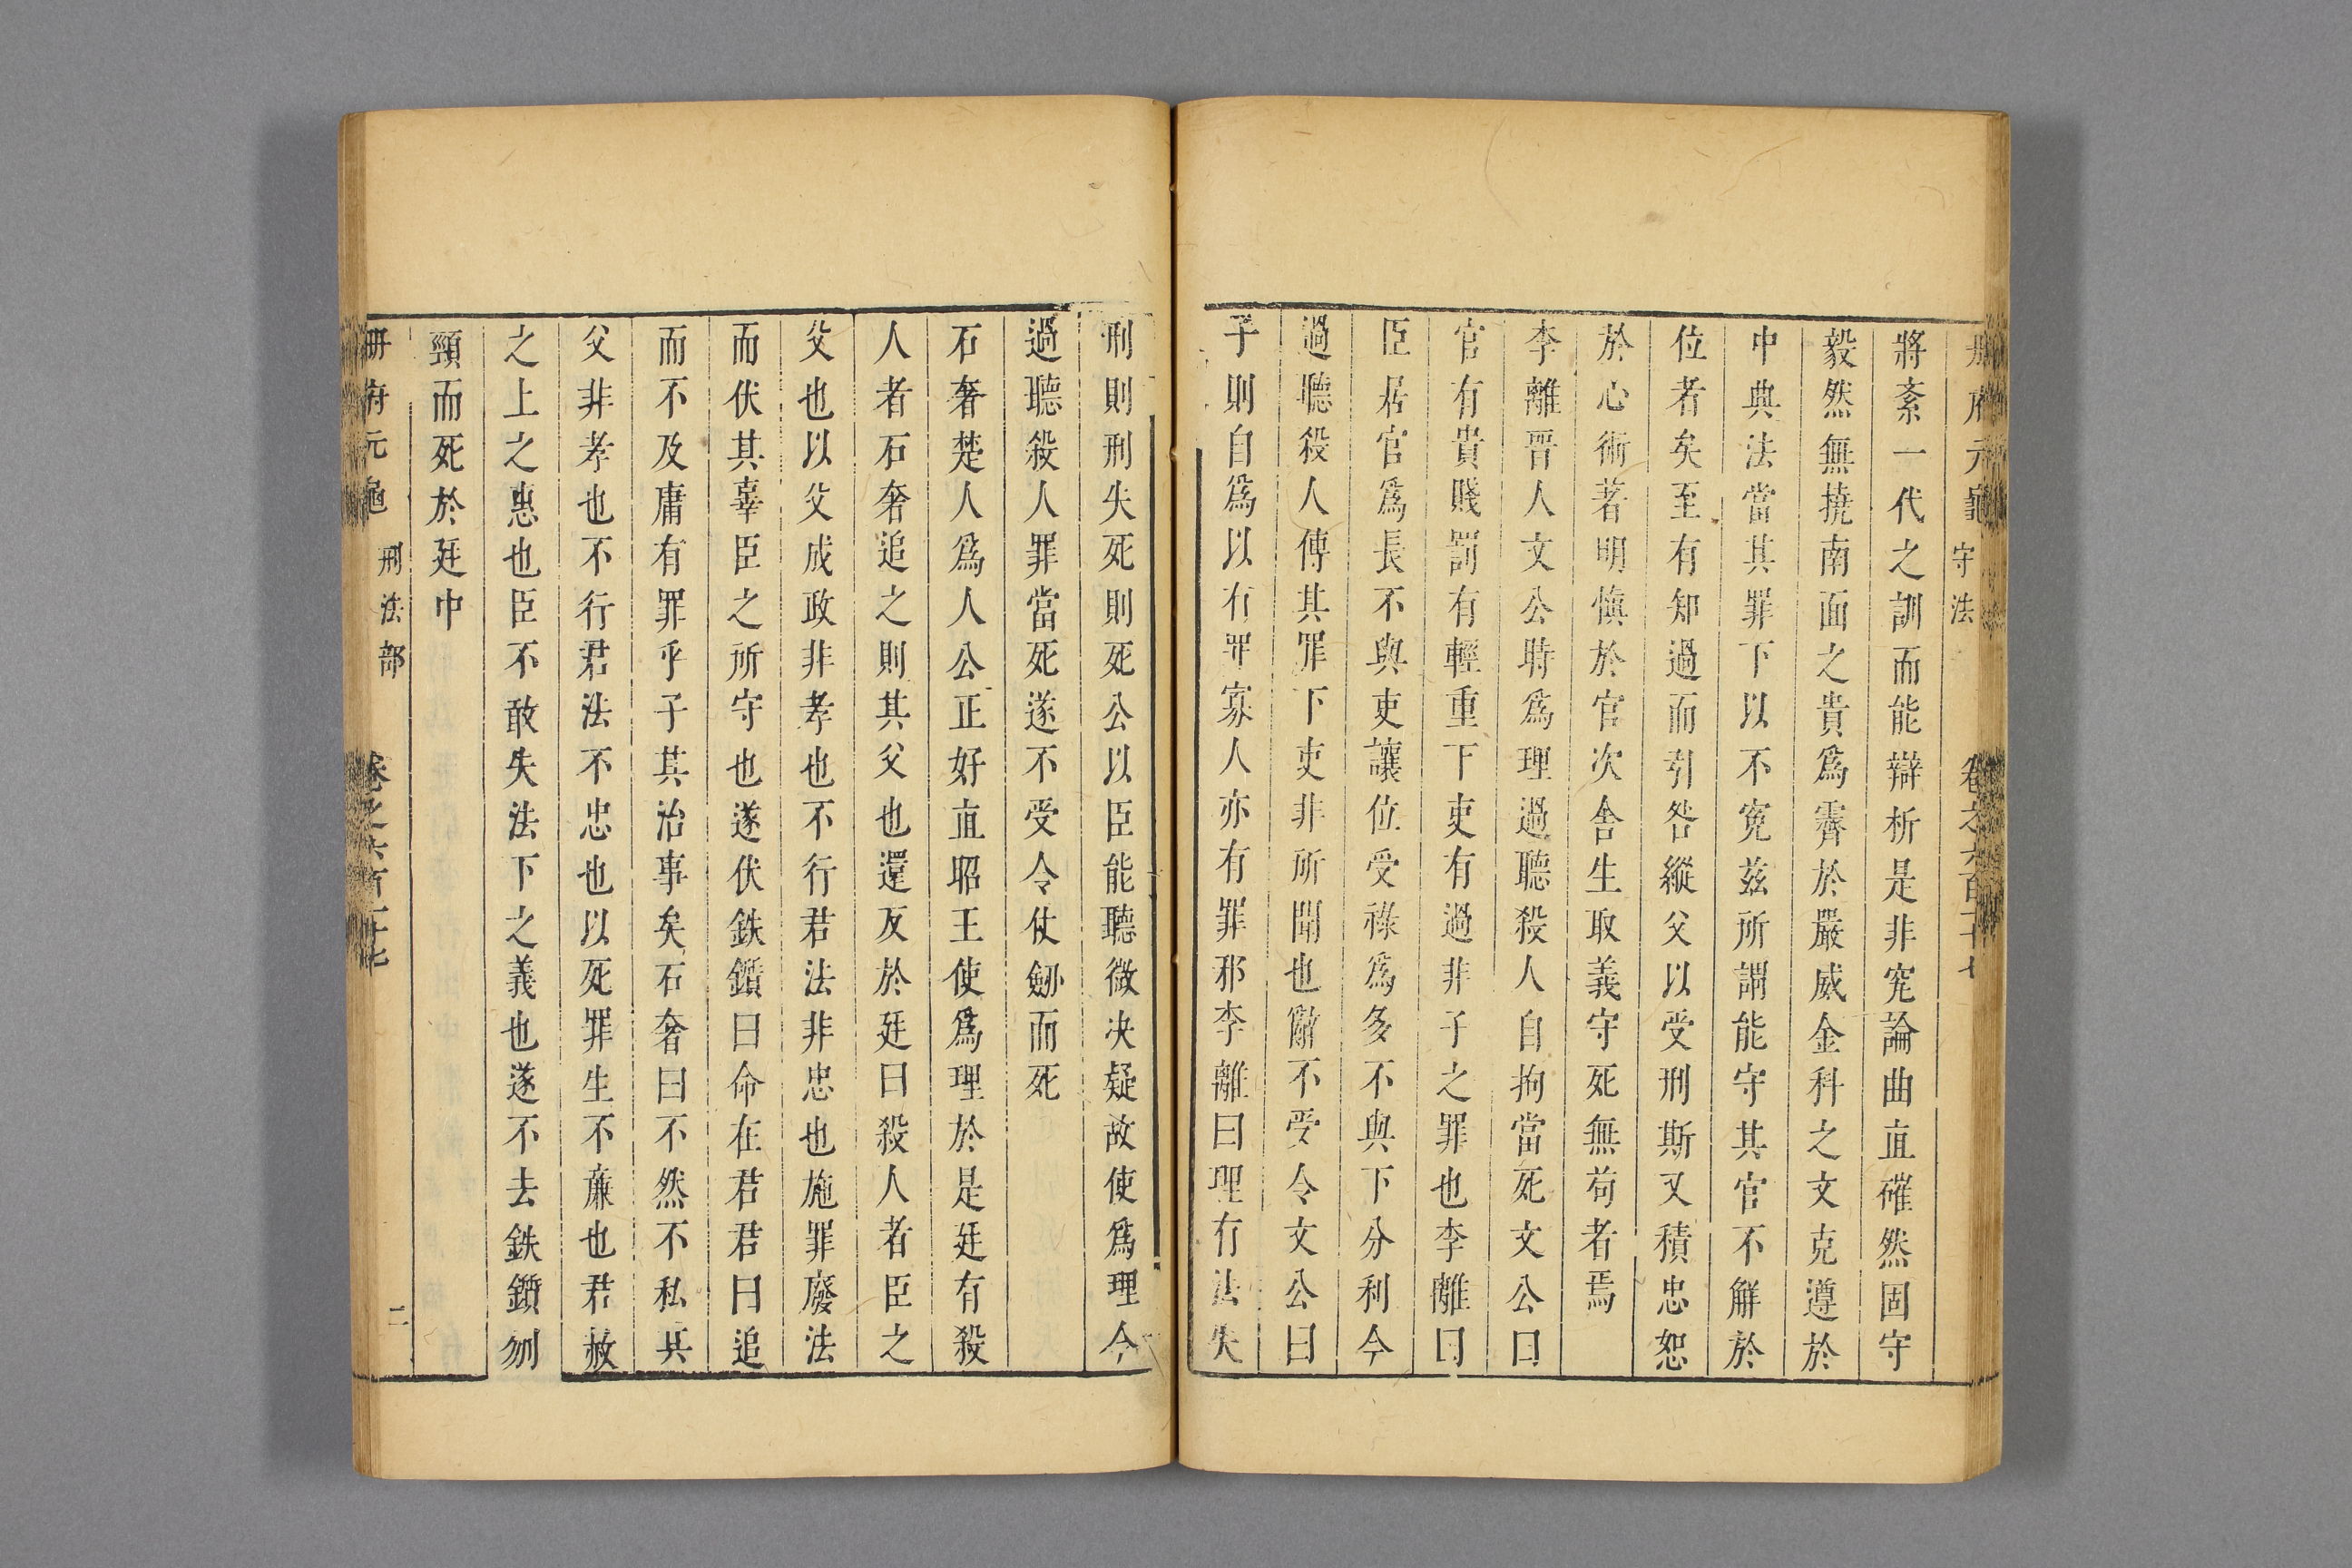 冊府元龜 守法 卷之六百十七
將紊一代之訓而能辯析是非究論曲直確然固守
毅然無撓南面之貴爲霽於嚴威金科之文克遵於
中典法當其罪下以不寃兹所謂能守其官不觧於
位者矣至有知過而引咎縱父以受刑斯又積忠恕
於心術著明愼於官次舍生取義守死無苟者焉
李離晉人文公時爲理過聽殺人自拘當死文公曰
官有貴賤罰有輕重下吏有過非子之罪也李離曰
臣居官爲長不與吏讓位受祿爲多不與下分利今
過聽殺人傅其罪下吏非所聞也辭不受令文公曰
子則自爲以有罪寡人亦有罪邪李離曰理有法失
刑則刑失死則死公以臣能聽微决疑故使爲理今
過聽殺人罪當死遂不受令仗劒而死
石奢楚人爲人公正好直昭王使爲理於是廷有殺
人者石奢追之則其父也還反於廷曰殺人者臣之
父也以父成政非孝也不行君法非忠也施罪廢法
而伏其辜臣之所守也遂伏鈇鑕曰命在君君曰追
而不及庸有罪乎子其治事矣石奢曰不然不私其
父非孝也不行君法不忠也以死罪生不廉也君赦
之上之惠也臣不敢失法下之義也遂不去鈇鑕刎
頸而死於廷中
冊府元龜 刑法部 卷之六百十七 二